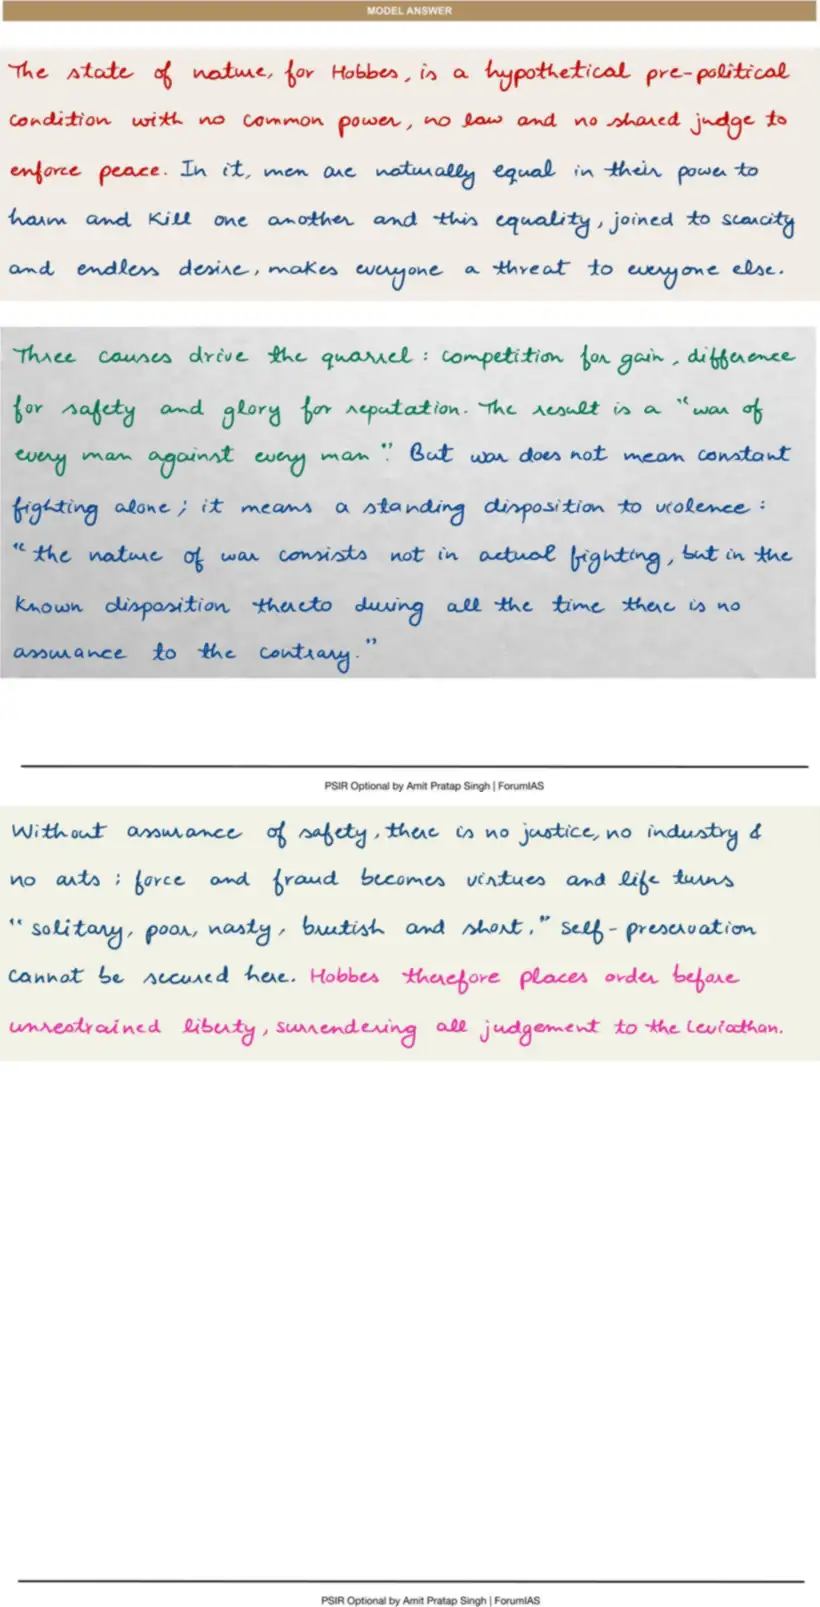 MODEL ANSWER
The state of nature, for Hobbes, is a hypothetical pre-political
condition with no common power, no law and no shared judge to
enforce peace. In it, men are naturally equal in their power to
harm and kill one another and this equality, joined to scarcity
and endless desire, makes everyone a threat to everyone else.
Three causes drive the quarrel : competition for gain, difference
for safety and glory for reputation. The result is a "war of
every man against every man". But war does not mean constant
fighting alone; it means a standing disposition to violence :
"the nature of war consists not in actual fighting, but in the
known disposition thereto during all the time there is no
assurance to the contrary."
PSIR Optional by Amit Pratap Singh | ForumIAS
Without assurance of safety, there is no justice, no industry &
no arts ; force and fraud becomes virtues and life turns
"solitary, poor, nasty, brutish and short." Self-preservation
cannot be secured here. Hobbes therefore places order before
unrestrained liberty, surrendering all judgement to the Leviathan.
PSIR Optional by Amit Pratap Singh | ForumIAS